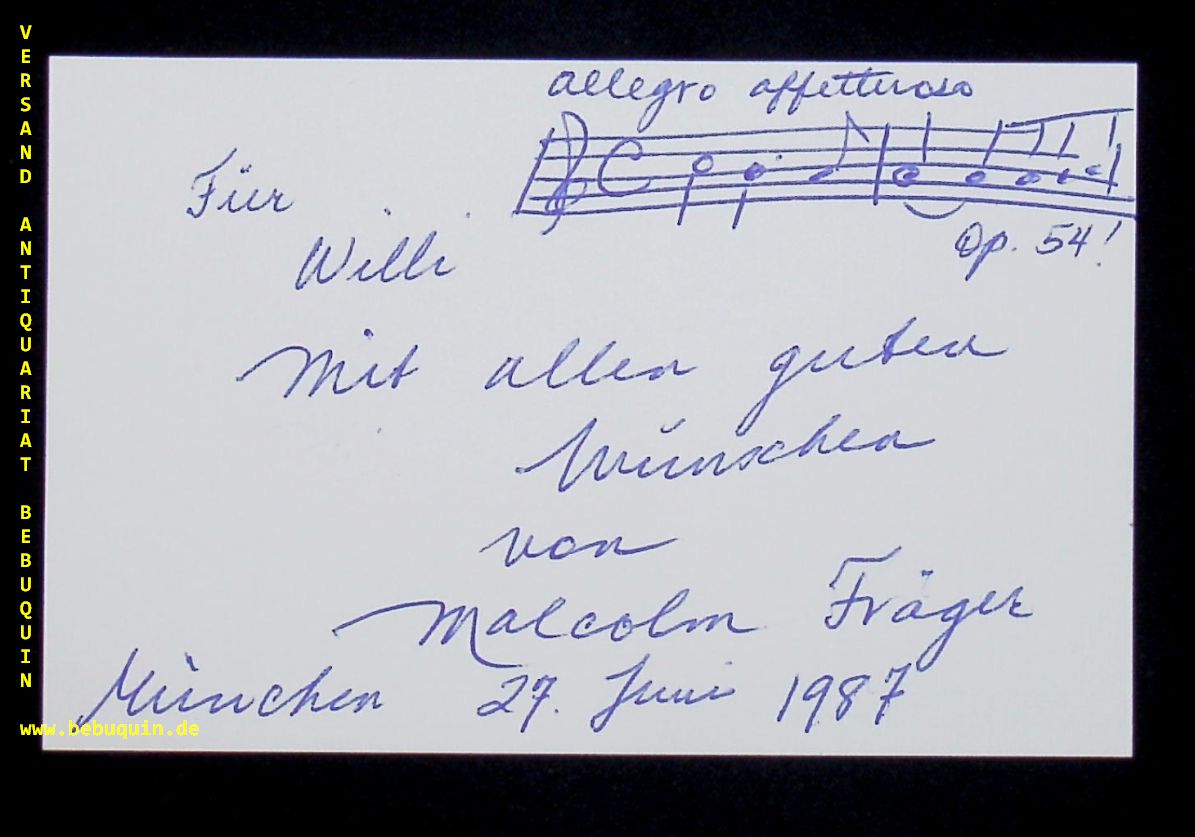 VERSAND ANTIQUARIAT BEBUQUIN
allegro affettuoso
Für
Willi
Op. 54!
Mit allen guten
Wünschen
von
Malcolm Fräger
München 27. Juni 1987
www.bebuquin.de